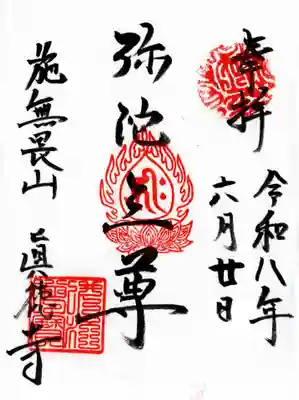 奉拝
令和八年
六月廿日
弥陀三尊
施無畏山
眞德寺